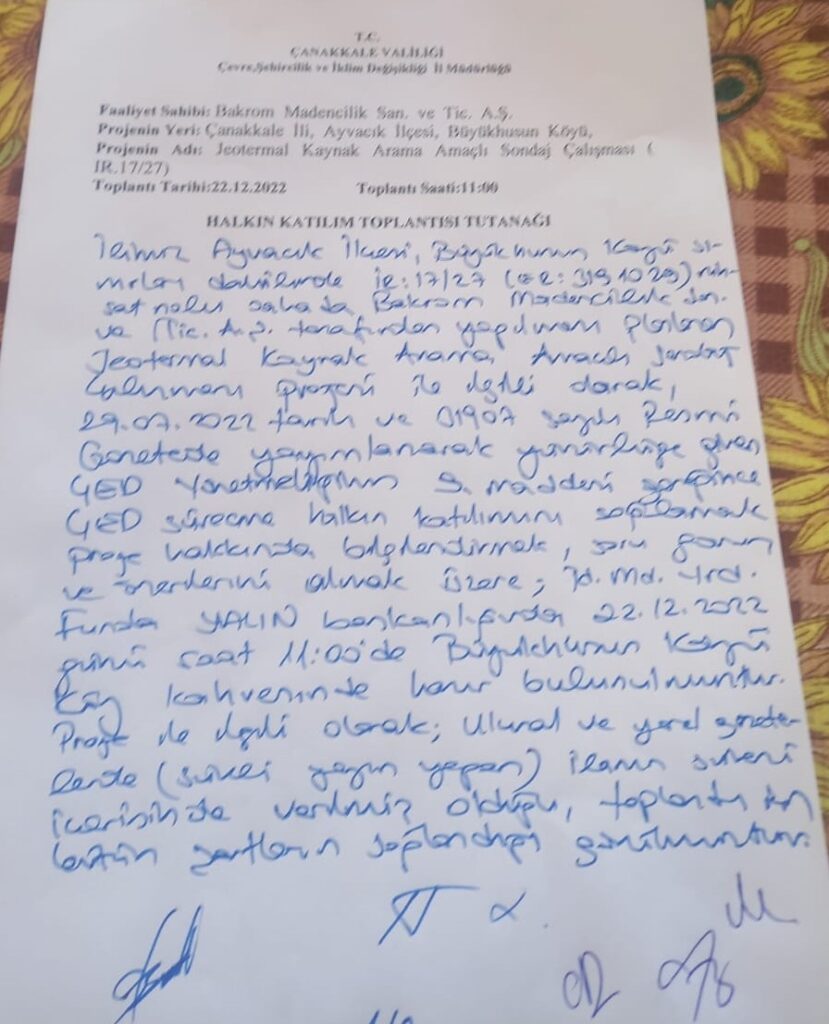 T.C.
ÇANAKKALE VALİLİĞİ
Çevre,Şehircilik ve İklim Değişikliği İl Müdürlüğü
Faaliyet Sahibi: Bakrom Madencilik San. ve Tic. A.Ş.
Projenin Yeri: Çanakkale İli, Ayvacık İlçesi, Büyükhusun Köyü,
Projenin Adı: Jeotermal Kaynak Arama Amaçlı Sondaj Çalışması (
İR.17/27)
Toplantı Tarihi:22.12.2022 Toplantı Saati:11:00
HALKIN KATILIM TOPLANTISI TUTANAĞI
İlimiz Ayvacık İlçesi, Büyükhusun Köyü sı-
nırları dahilinde İR:17/27 (ER: 3191029) ruh-
sat nolu sahada, Bakrom Madencilik San.
ve Tic. A.Ş. tarafından yapılması planlanan
Jeotermal Kaynak Arama Amaçlı Sondaj
Çalışması projesi ile ilgili olarak,
29.07.2022 tarih ve 31907 sayılı Resmi
Gazetede yayımlanarak yürürlüğe giren
ÇED Yönetmeliğinin 9. maddesi gereğince
ÇED sürecine halkın katılımını sağlamak
proje hakkında bilgilendirmek, soru görüş
ve önerilerini almak üzere; İl. Md. Yrd.
Funda YALIN başkanlığında 22.12.2022
günü saat 11:00'de Büyükhusun Köyü
Köy kahvesinde hazır bulunulmuştur.
Proje ile ilgili olarak; ulusal ve yerel gazete-
lerde (süreli yayın yapan) ilanın süresi
içerisinde verilmiş olduğu, toplantı için
bütün şartların sağlandığı görülmüştür.